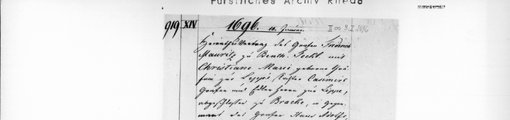 Fürstliches Archiv Rheda
919 XIV 1696. 11. Januar.
Heirathsvertrag des Grafen Friedrich
Mauritz zu Benth. Teckl. mit
Christiane Marie geborne Grä-
fin zur Lippe, Tochter Casimirs
Grafen und Edlen Herrn zur Lippe,
abgeschlossen zu Bracke, in Gegen-
wart des Grafen Hans Adolfs,